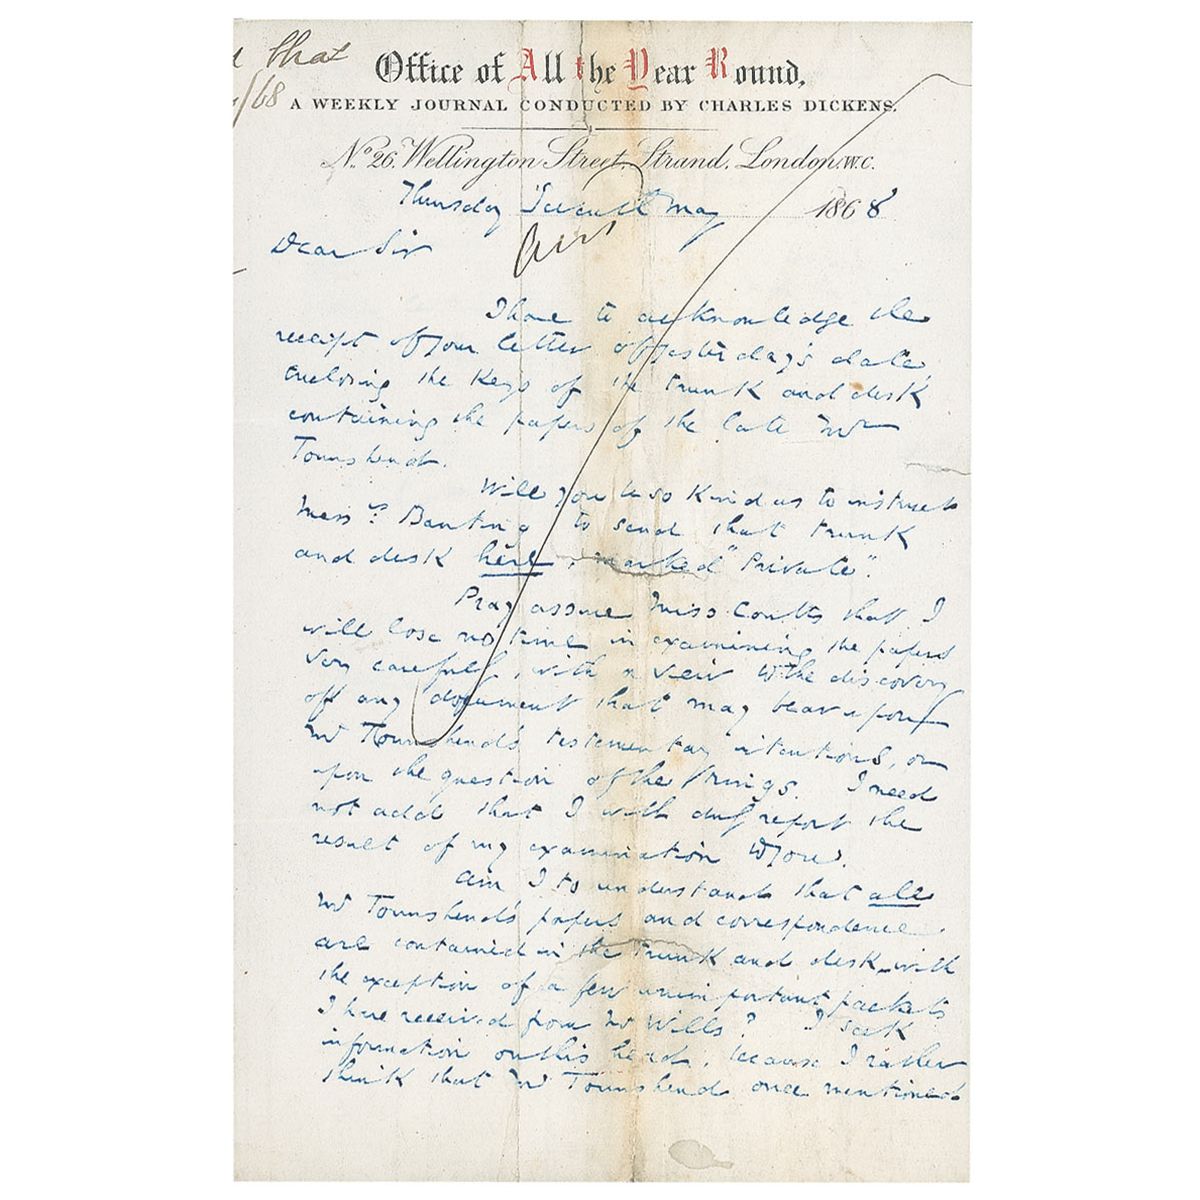 that
/68
Office of All the Year Round,
A WEEKLY JOURNAL CONDUCTED BY CHARLES DICKENS.
No. 26, Wellington Street, Strand, London. W.C.
Thursday Seventh May 1868
Dear Sir
I have to acknowledge the
receipt of your letter of yesterday's date,
enclosing the keys of the trunk and desk
containing the papers of the late Mr
Townshend.
Will you be so kind as to instruct
Messrs. Banting to send that trunk
and desk here, marked "Private".
Pray assure Miss Coutts that I
will lose no time in examining the papers
very carefully, with a view to the discovery
of any document that may bear upon
Mr Townshend's testamentary intentions, or
upon the question of the rings. I need
not add that I will duly report the
result of my examination to you.
Am I to understand that all
Mr Townshend's papers and correspondence
are contained in the trunk and desk, with
the exception of a few unimportant packets
I have received from Mr Wills? I seek
information on this head, because I rather
think that Mr Townshend once mentioned